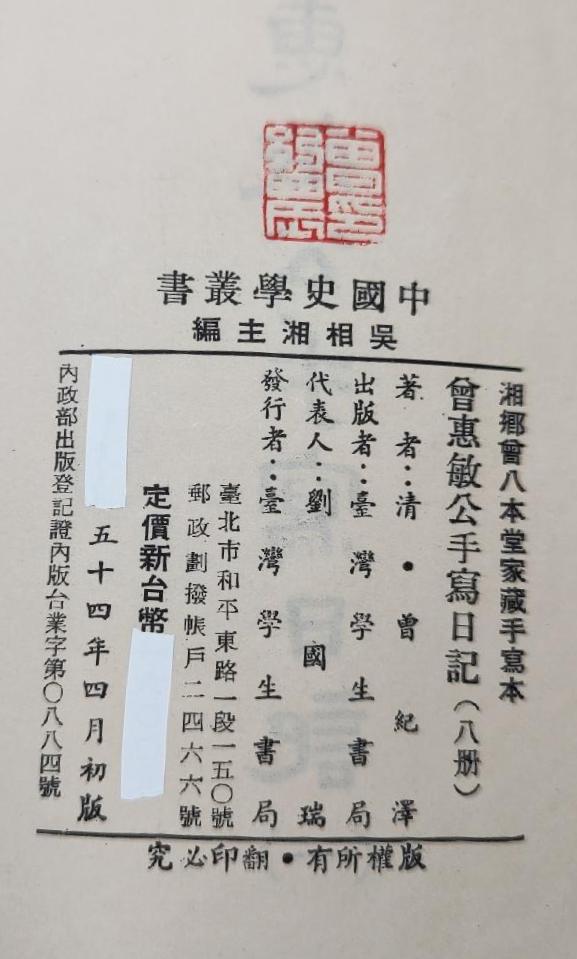 中國史學叢書
吳相湘主編
湘鄉曾八本堂家藏手寫本
曾惠敏公手寫日記（八册）
著者：清•曾紀澤
出版者：臺灣學生書局
代表人：劉國瑞
發行者：臺灣學生書局
臺北市和平東路一段一五〇號
郵政劃撥帳戶二四六六號
定價新台幣
五十四年四月初版
內政部出版登記證內版台業字第〇八八四號
版權所有•翻印必究